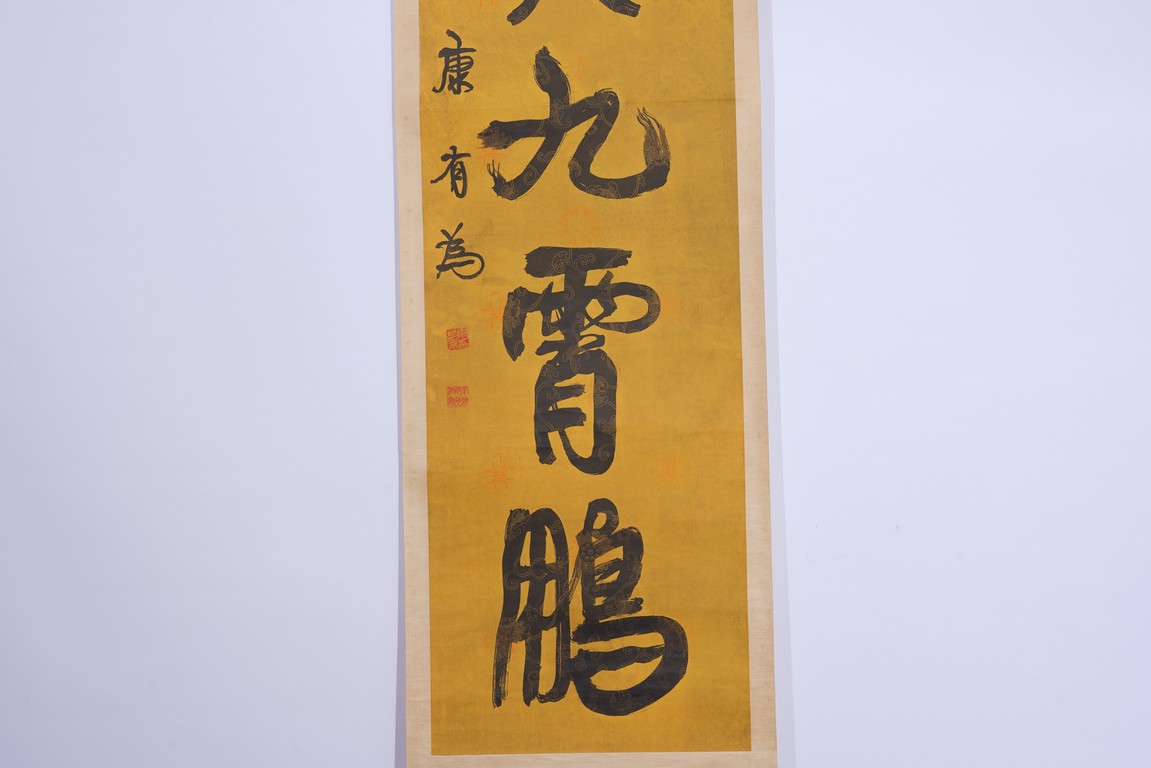 九霄鵬
康有為